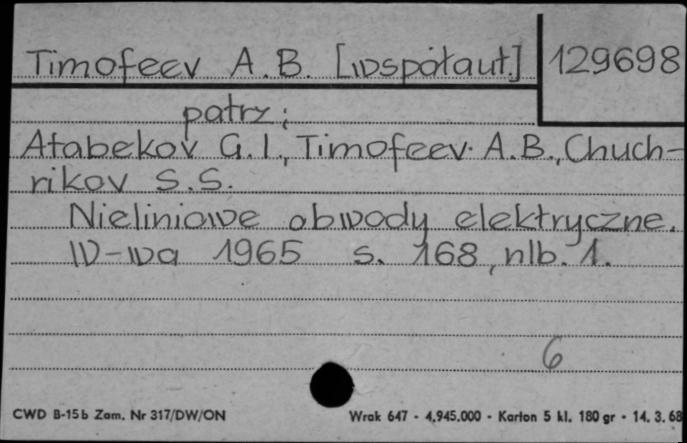 Timofeev A.B. [współaut.] 129698
patrz:
Atabekov G.I., Timofeev A.B., Chuch-
rikov S.S.
Nieliniowe obwody elektryczne.
W-wa 1965 s. 168, nlb. 1.
6
CWD B-15b Zam. Nr 317/DW/ON Wrak 647 - 4.945.000 - Karton 5 kl. 180 gr - 14. 3. 68